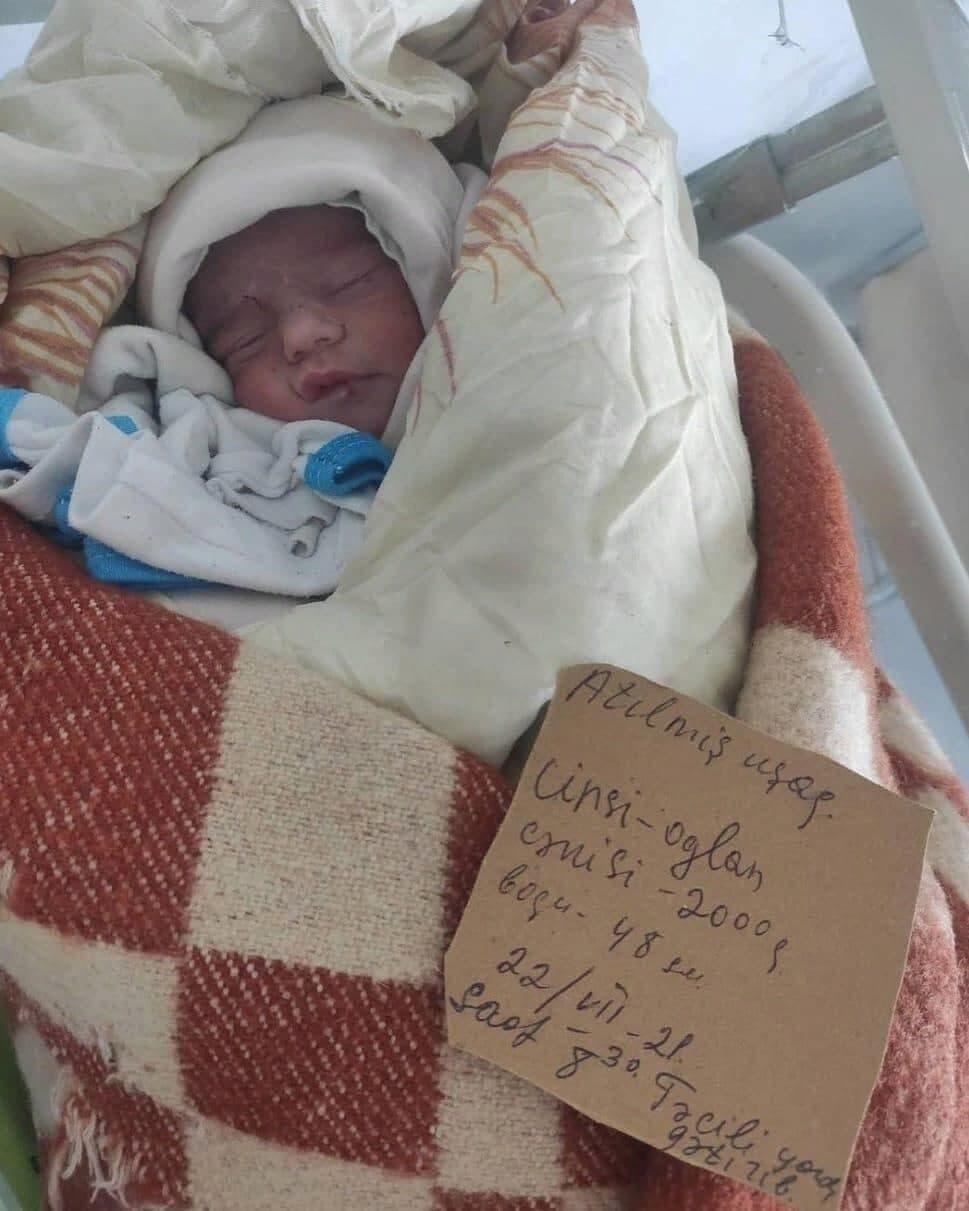 Atılmış uşaq.
Cinsi - oğlan
çəkisi - 2000 q
boyu - 48 sm.
22/VII - 21.
Saat - 8 30. Təcili yard
gətirib.